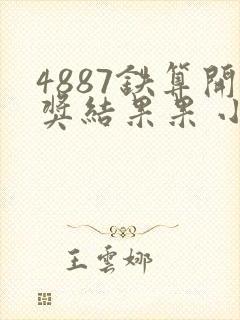 4887鉄算開
奖結果果小
王雲娜